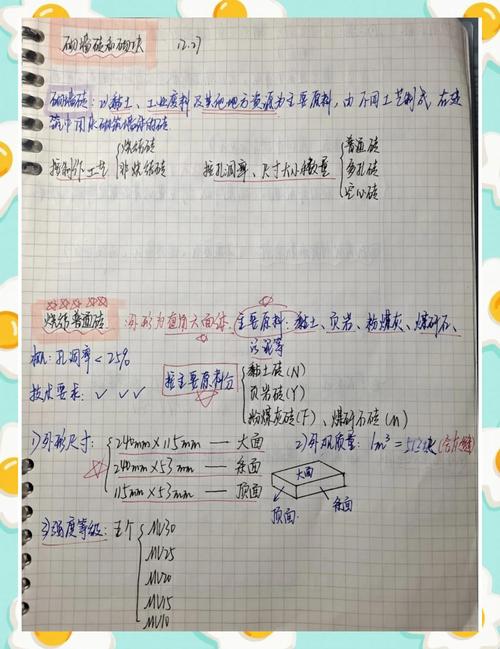 砌墙砖和砌块 12.27
砌墙砖:以黏土、工业废料及其他地方资源为主要原料,由不同工艺制成,在建
筑中用来砌筑墙体的砖
按制作工艺 { 烧结砖
非烧结砖
按孔洞率、尺寸大小和数量 { 普通砖
多孔砖
空心砖
烧结普通砖:外形为直角六面体。主要原料:黏土、页岩、粉煤灰、煤矸石、
污泥等
孔洞率<25%
技术要求:✓ ✓ ✓
按主要原料分 { 黏土砖(N)
页岩砖(Y)
粉煤灰砖(F)、煤矸石砖(M)
1)外形尺寸: { 240mm×115mm — 大面
240mm×53mm — 条面
115mm×53mm — 顶面
2)外观质量:1m³=512块(含灰缝)
大面
顶面 条面
3)强度等级:五个 { MU30
MU25
MU20
MU15
MU10